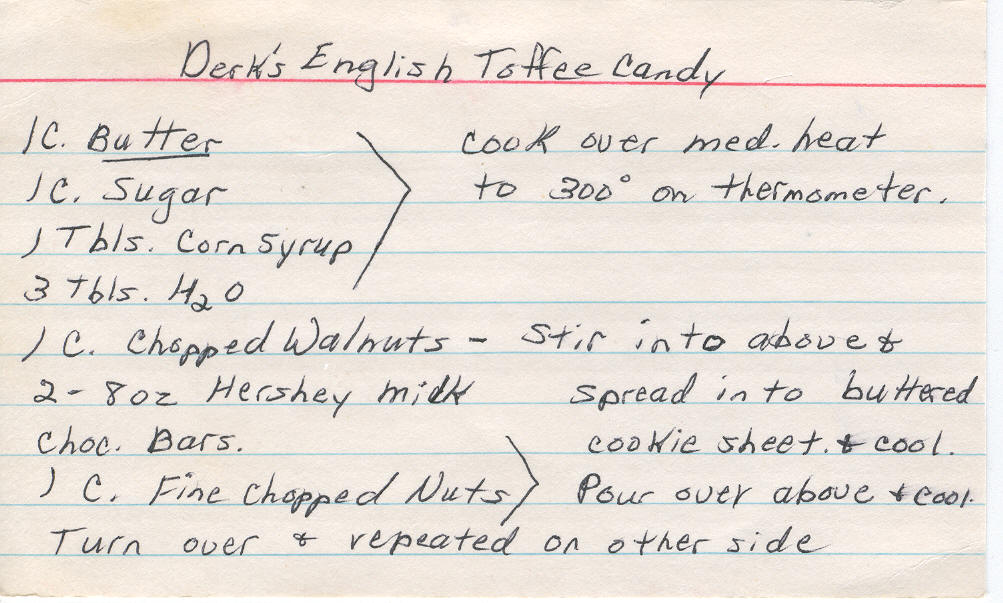 Derk's English Toffee Candy
1 C. Butter
1 C. Sugar
1 Tbls. Corn Syrup
3 tbls. H2O
cook over med. heat
to 300° on thermometer.
1 C. Chopped Walnuts - Stir into above &
spread in to buttered
cookie sheet. & cool.
2 - 8oz Hershey milk
Choc. Bars.
1 C. Fine Chopped Nuts
Pour over above & cool.
Turn over & repeated on other side